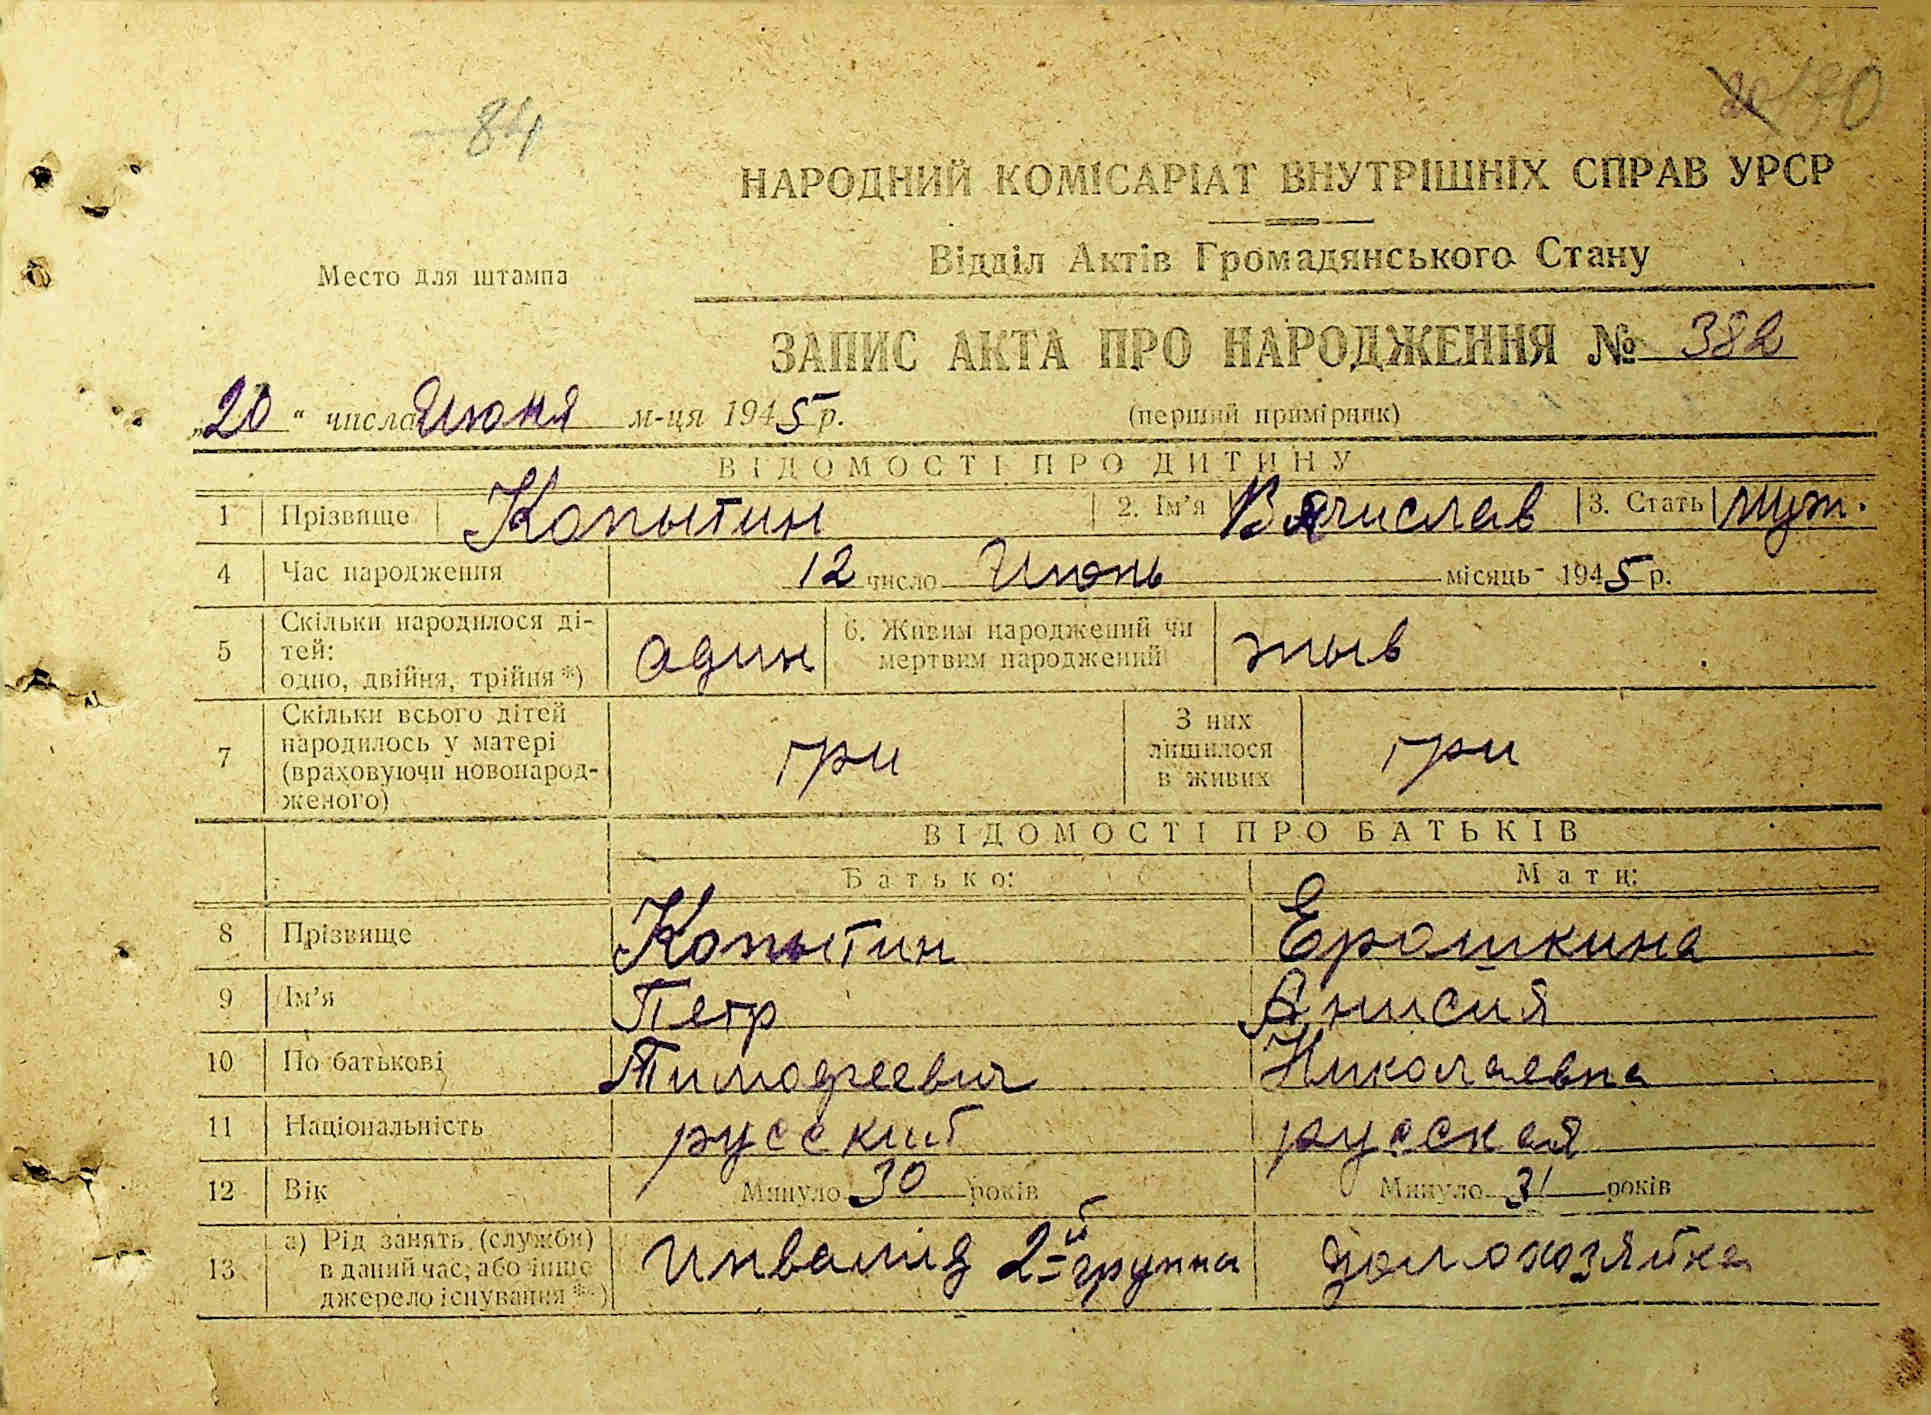 84
190
НАРОДНИЙ КОМІСАРІАТ ВНУТРІШНІХ СПРАВ УРСР
Відділ Актів Громадянського Стану
Место для штампа
ЗАПИС АКТА ПРО НАРОДЖЕННЯ № 382
„20“ числа Июня м-ця 1945 р. (перший примірник)
ВІДОМОСТІ ПРО ДИТИНУ
1 Прізвище Копытин 2. Ім'я Вячислав 3. Стать муж.
4 Час народження 12 число Июнь місяць 1945 р.
5 Скільки народилося ді-
тей:
одно, двійня, трійня *) один 6. Живим народжений чи
мертвим народжений жыв
7 Скільки всього дітей
народилось у матері
(враховуючи новонарод-
женого) три З них
лишилося
в живих три
ВІДОМОСТІ ПРО БАТЬКІВ
Батько: Мати:
8 Прізвище Копытин Ерошкина
9 Ім'я Петр Анисия
10 По батькові Тимофеевич Николаевна
11 Національність русский русская
12 Вік Минуло 30 років Минуло 31 років
13 а) Рід занять (служби)
в даний час, або інше
джерело існування **) инвалид 2-й группы домохозяйка